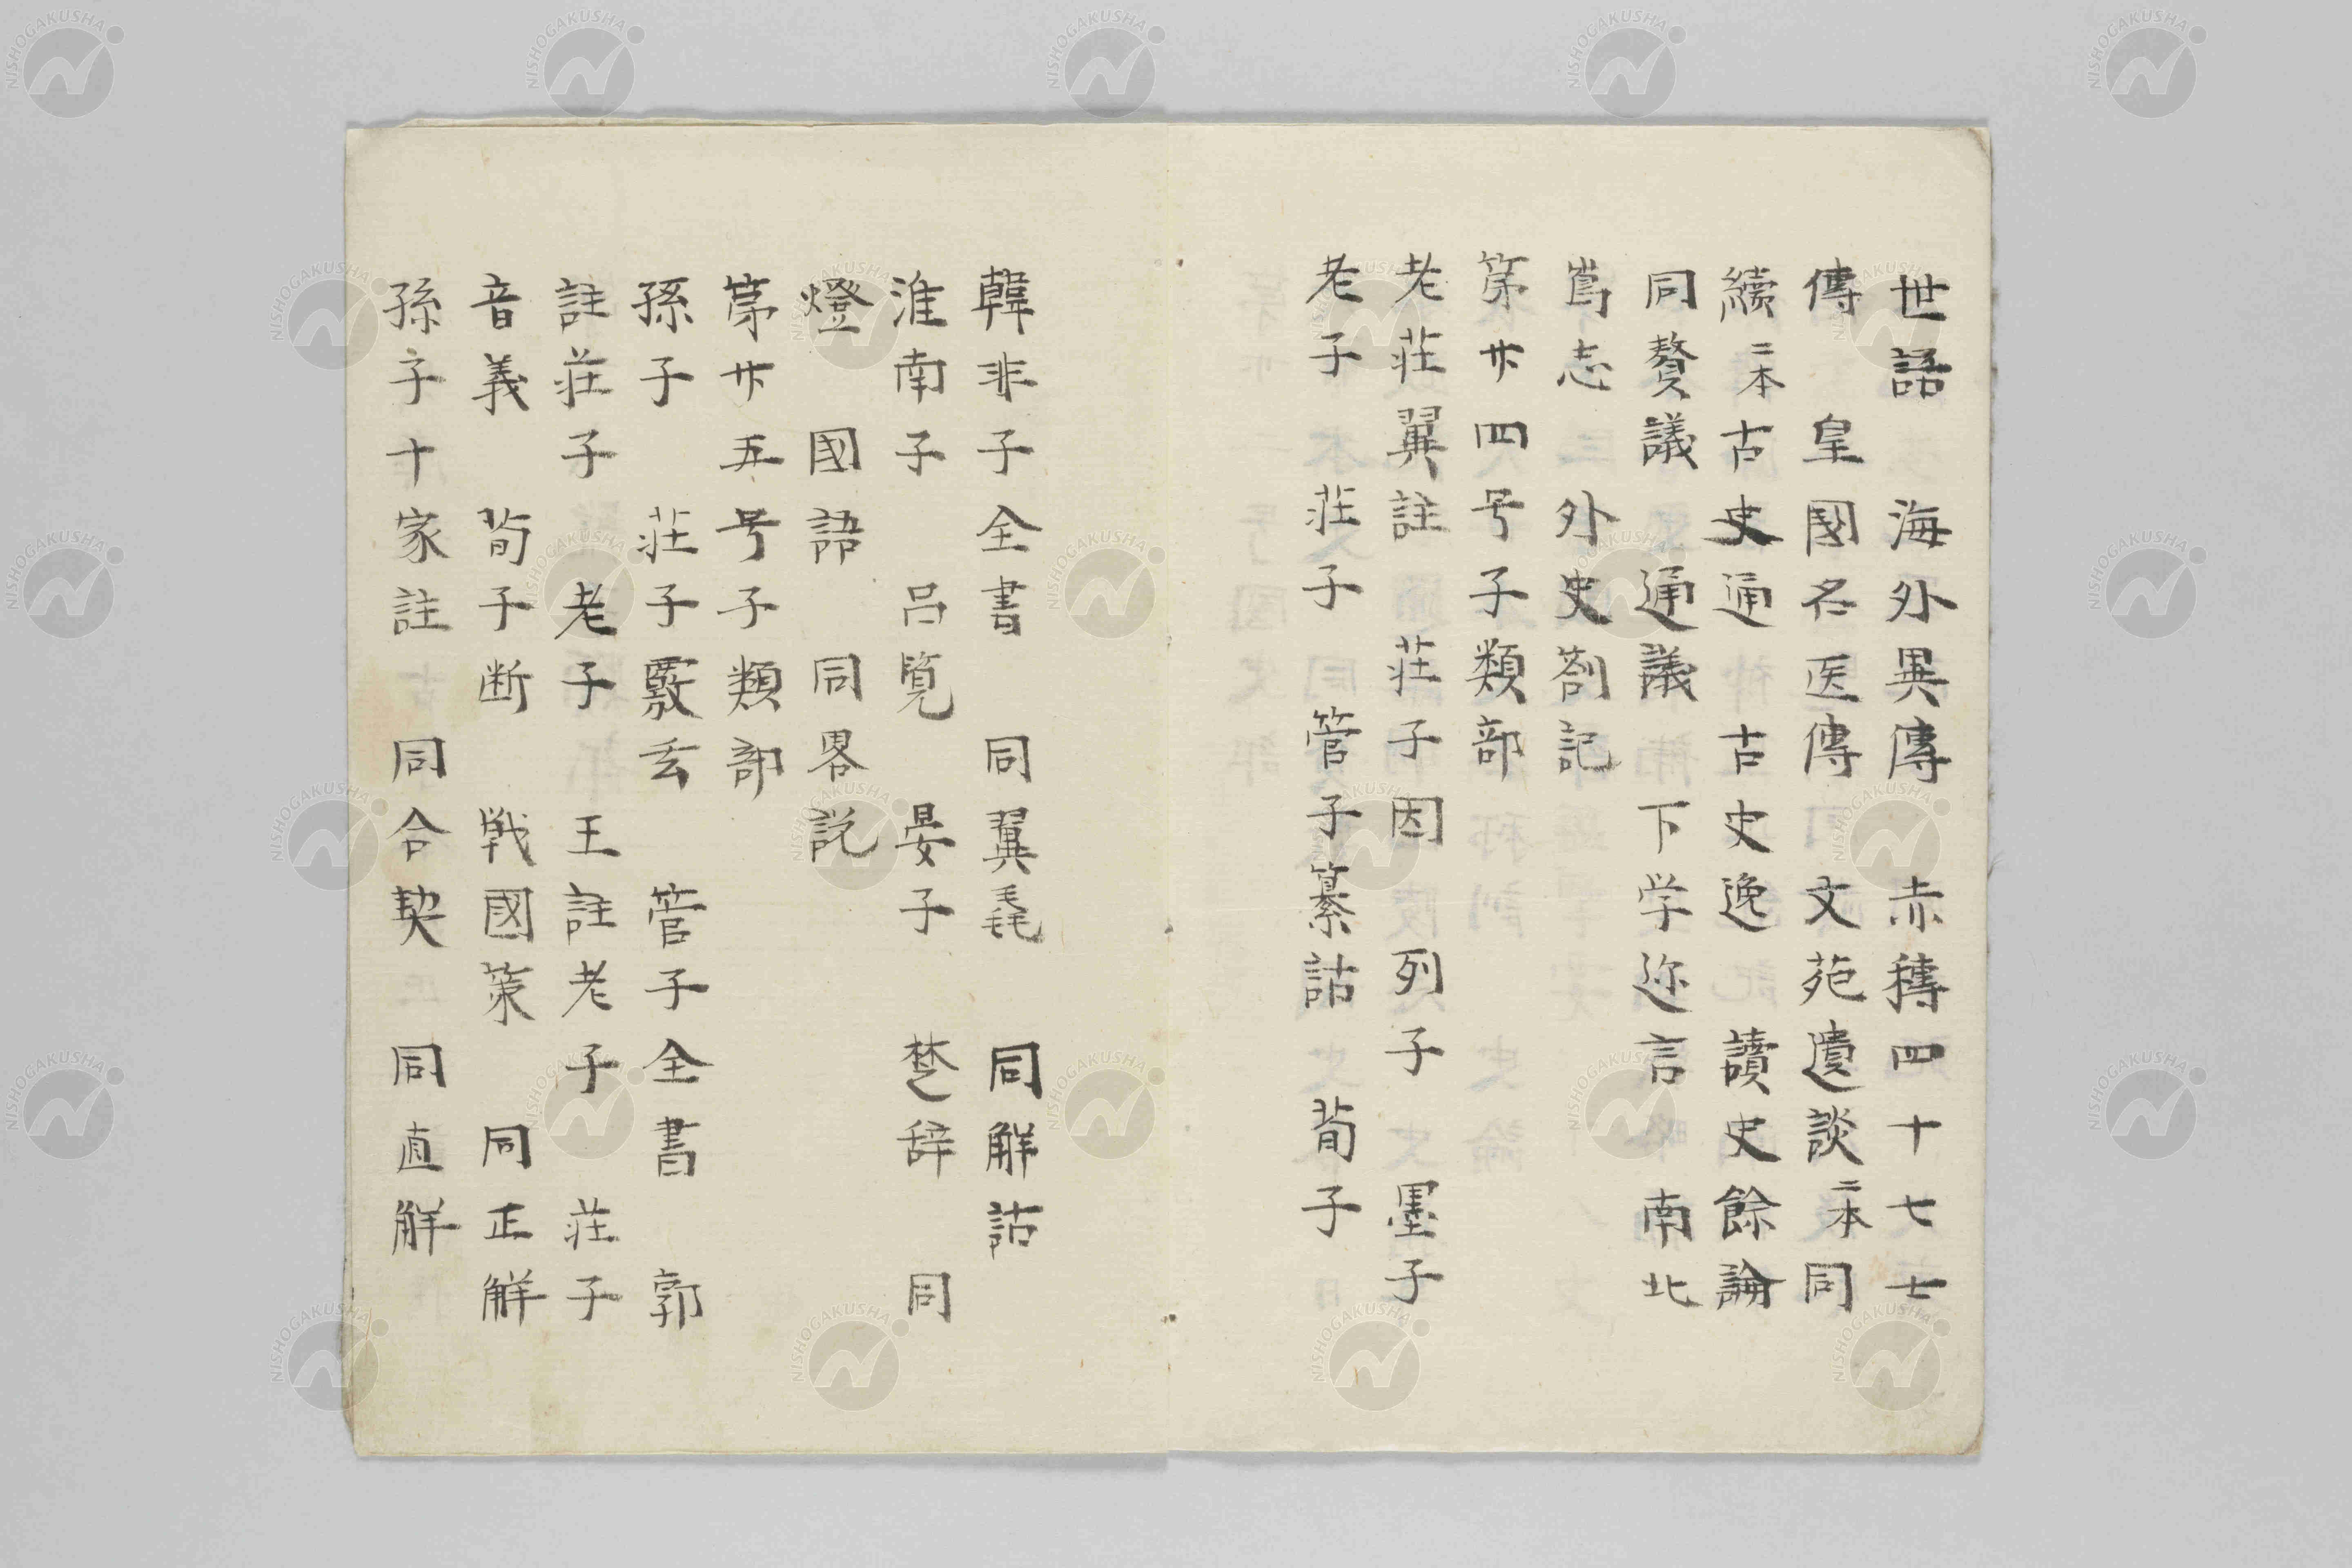 世語　海外異傳　赤穗四十七士
傳　皇國名医傳　文苑遺談二本同
續二本古史通　古史逸　讀史餘論
同贅議　通議　下学迩言　南北
嶌志　外史劄記
第廿四号子類部
老荘翼註　荘子因　列子　墨子
老子　荘子　管子　管子纂詁　荀子
韓非子全書　同翼毳　同觧詁
淮南子　呂覧　晏子　楚辞　同
燈　國語　同畧説
第廿五号子類部
孫子　荘子覈玄　管子全書　郭
註荘子　老子　王註老子　荘子
音義　荀子断　戦國策　同正觧
孫子十家註　同合契　同直觧
NISHOGAKUSHA